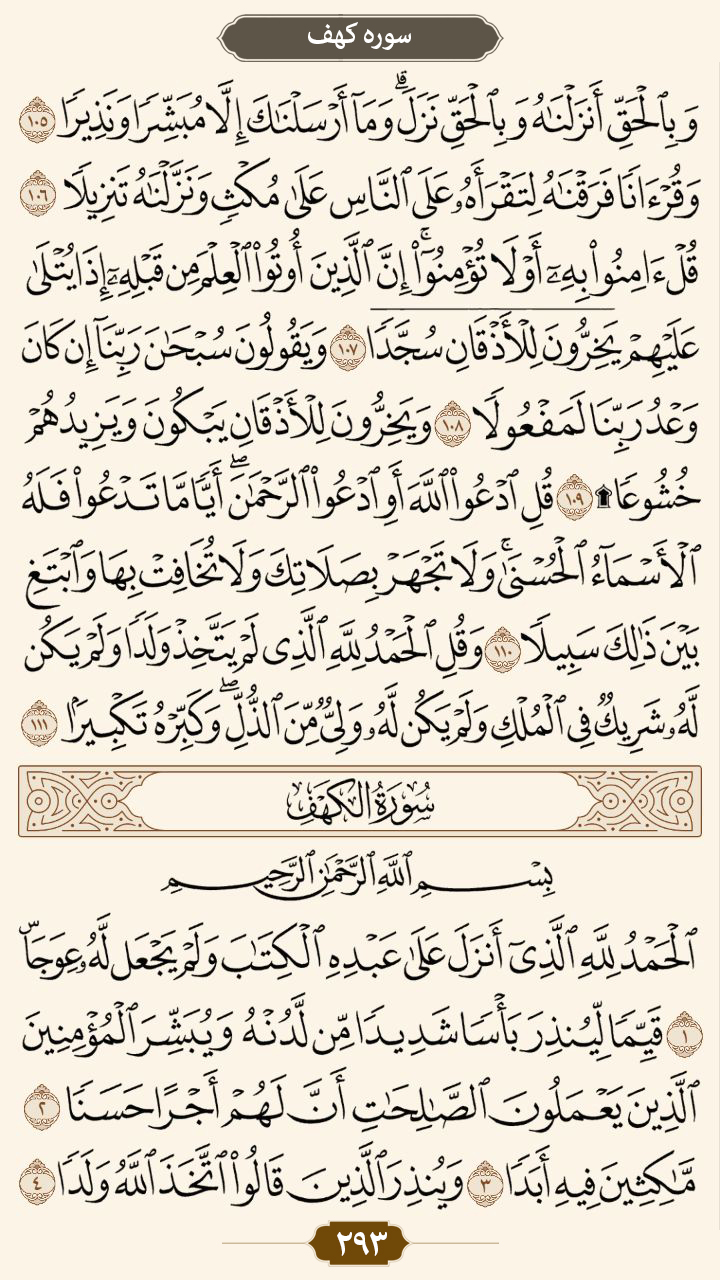 سوره کهف
وَبِٱلۡحَقِّ أَنزَلۡنَٰهُ وَبِٱلۡحَقِّ نَزَلَۗ وَمَآ أَرۡسَلۡنَٰكَ إِلَّا مُبَشِّرٗا وَنَذِيرٗا ١٠٥
وَقُرۡءَانٗا فَرَقۡنَٰهُ لِتَقۡرَأَهُۥ عَلَى ٱلنَّاسِ عَلَىٰ مُكۡثٖ وَنَزَّلۡنَٰهُ تَنزِيلٗا ١٠٦
قُلۡ ءَامِنُواْ بِهِۦٓ أَوۡ لَا تُؤۡمِنُوٓاْۚ إِنَّ ٱلَّذِينَ أُوتُواْ ٱلۡعِلۡمَ مِن قَبۡلِهِۦٓ إِذَا يُتۡلَىٰ
عَلَيۡهِمۡ يَخِرُّونَۤ لِلۡأَذۡقَانِۤ سُجَّدٗاۤ ١٠٧ وَيَقُولُونَ سُبۡحَٰنَ رَبِّنَآ إِن كَانَ
وَعۡدُ رَبِّنَا لَمَفۡعُولٗا ١٠٨ وَيَخِرُّونَ لِلۡأَذۡقَانِ يَبۡكُونَ وَيَزِيدُهُمۡ
خُشُوعٗا۩ ١٠٩ قُلِ ٱدۡعُواْ ٱللَّهَ أَوِ ٱدۡعُواْ ٱلرَّحۡمَٰنَۖ أَيّٗا مَّا تَدۡعُواْ فَلَهُ
ٱلۡأَسۡمَآءُ ٱلۡحُسۡنَىٰۚ وَلَا تَجۡهَرۡ بِصَلَاتِكَ وَلَا تُخَافِتۡ بِهَا وَٱبۡتَغِ
بَيۡنَ ذَٰلِكَ سَبِيلٗا ١١٠ وَقُلِ ٱلۡحَمۡدُ لِلَّهِ ٱلَّذِي لَمۡ يَتَّخِذۡ وَلَدٗا وَلَمۡ يَكُن
لَّهُۥ شَرِيكٞ فِي ٱلۡمُلۡكِ وَلَمۡ يَكُن لَّهُۥ وَلِيّٞ مِّنَ ٱلذُّلِّۖ وَكَبِّرۡهُ تَكۡبِيرَۢا ١١١
سُورَةُ الكَهۡفِ
بِسۡمِ ٱللَّهِ ٱلرَّحۡمَٰنِ ٱلرَّحِيمِ
ٱلۡحَمۡدُ لِلَّهِ ٱلَّذِيٓ أَنزَلَ عَلَىٰ عَبۡدِهِ ٱلۡكِتَٰبَ وَلَمۡ يَجۡعَل لَّهُۥ عِوَجَاۜ
١ قَيِّمٗا لِّيُنذِرَ بَأۡسٗا شَدِيدٗا مِّن لَّدُنۡهُ وَيُبَشِّرَ ٱلۡمُؤۡمِنِينَ
ٱلَّذِينَ يَعۡمَلُونَ ٱلصَّٰلِحَٰتِ أَنَّ لَهُمۡ أَجۡرًا حَسَنٗا ٢
مَّٰكِثِينَ فِيهِ أَبَدٗا ٣ وَيُنذِرَ ٱلَّذِينَ قَالُواْ ٱتَّخَذَ ٱللَّهُ وَلَدٗا ٤
۲۹۳